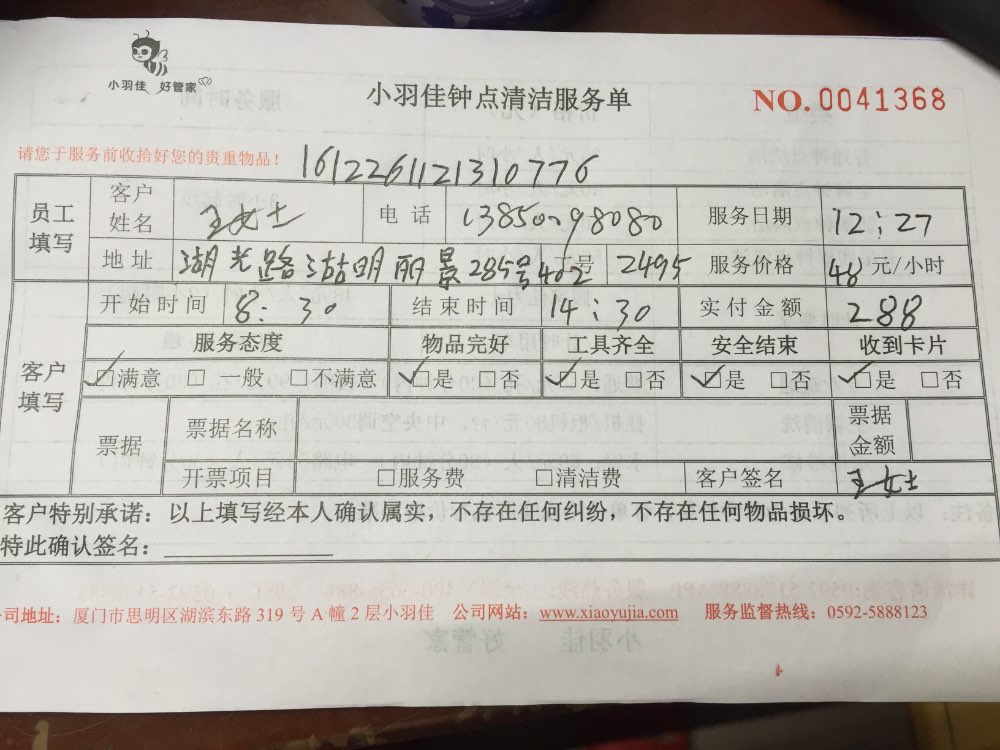 小羽佳 好管家
小羽佳钟点清洁服务单
NO.0041368
请您于服务前收拾好您的贵重物品！
1612261121310776
员工填写 客户姓名 王女士 电话 13850098080 服务日期 12:27
地址 湖光路 明丽景285号402 工号 2495 服务价格 48 元/小时
开始时间 8:30 结束时间 14:30 实付金额 288
客户填写 服务态度 物品完好 工具齐全 安全结束 收到卡片
☑满意 □一般 □不满意 ☑是 □否 ☑是 □否 ☑是 □否 ☑是 □否
票据 票据名称 票据金额
开票项目 □服务费 □清洁费 客户签名 王女士
客户特别承诺：以上填写经本人确认属实，不存在任何纠纷，不存在任何物品损坏。
特此确认签名：
司地址：厦门市思明区湖滨东路 319 号 A 幢 2 层小羽佳 公司网站：www.xiaoyujia.com 服务监督热线：0592-5888123